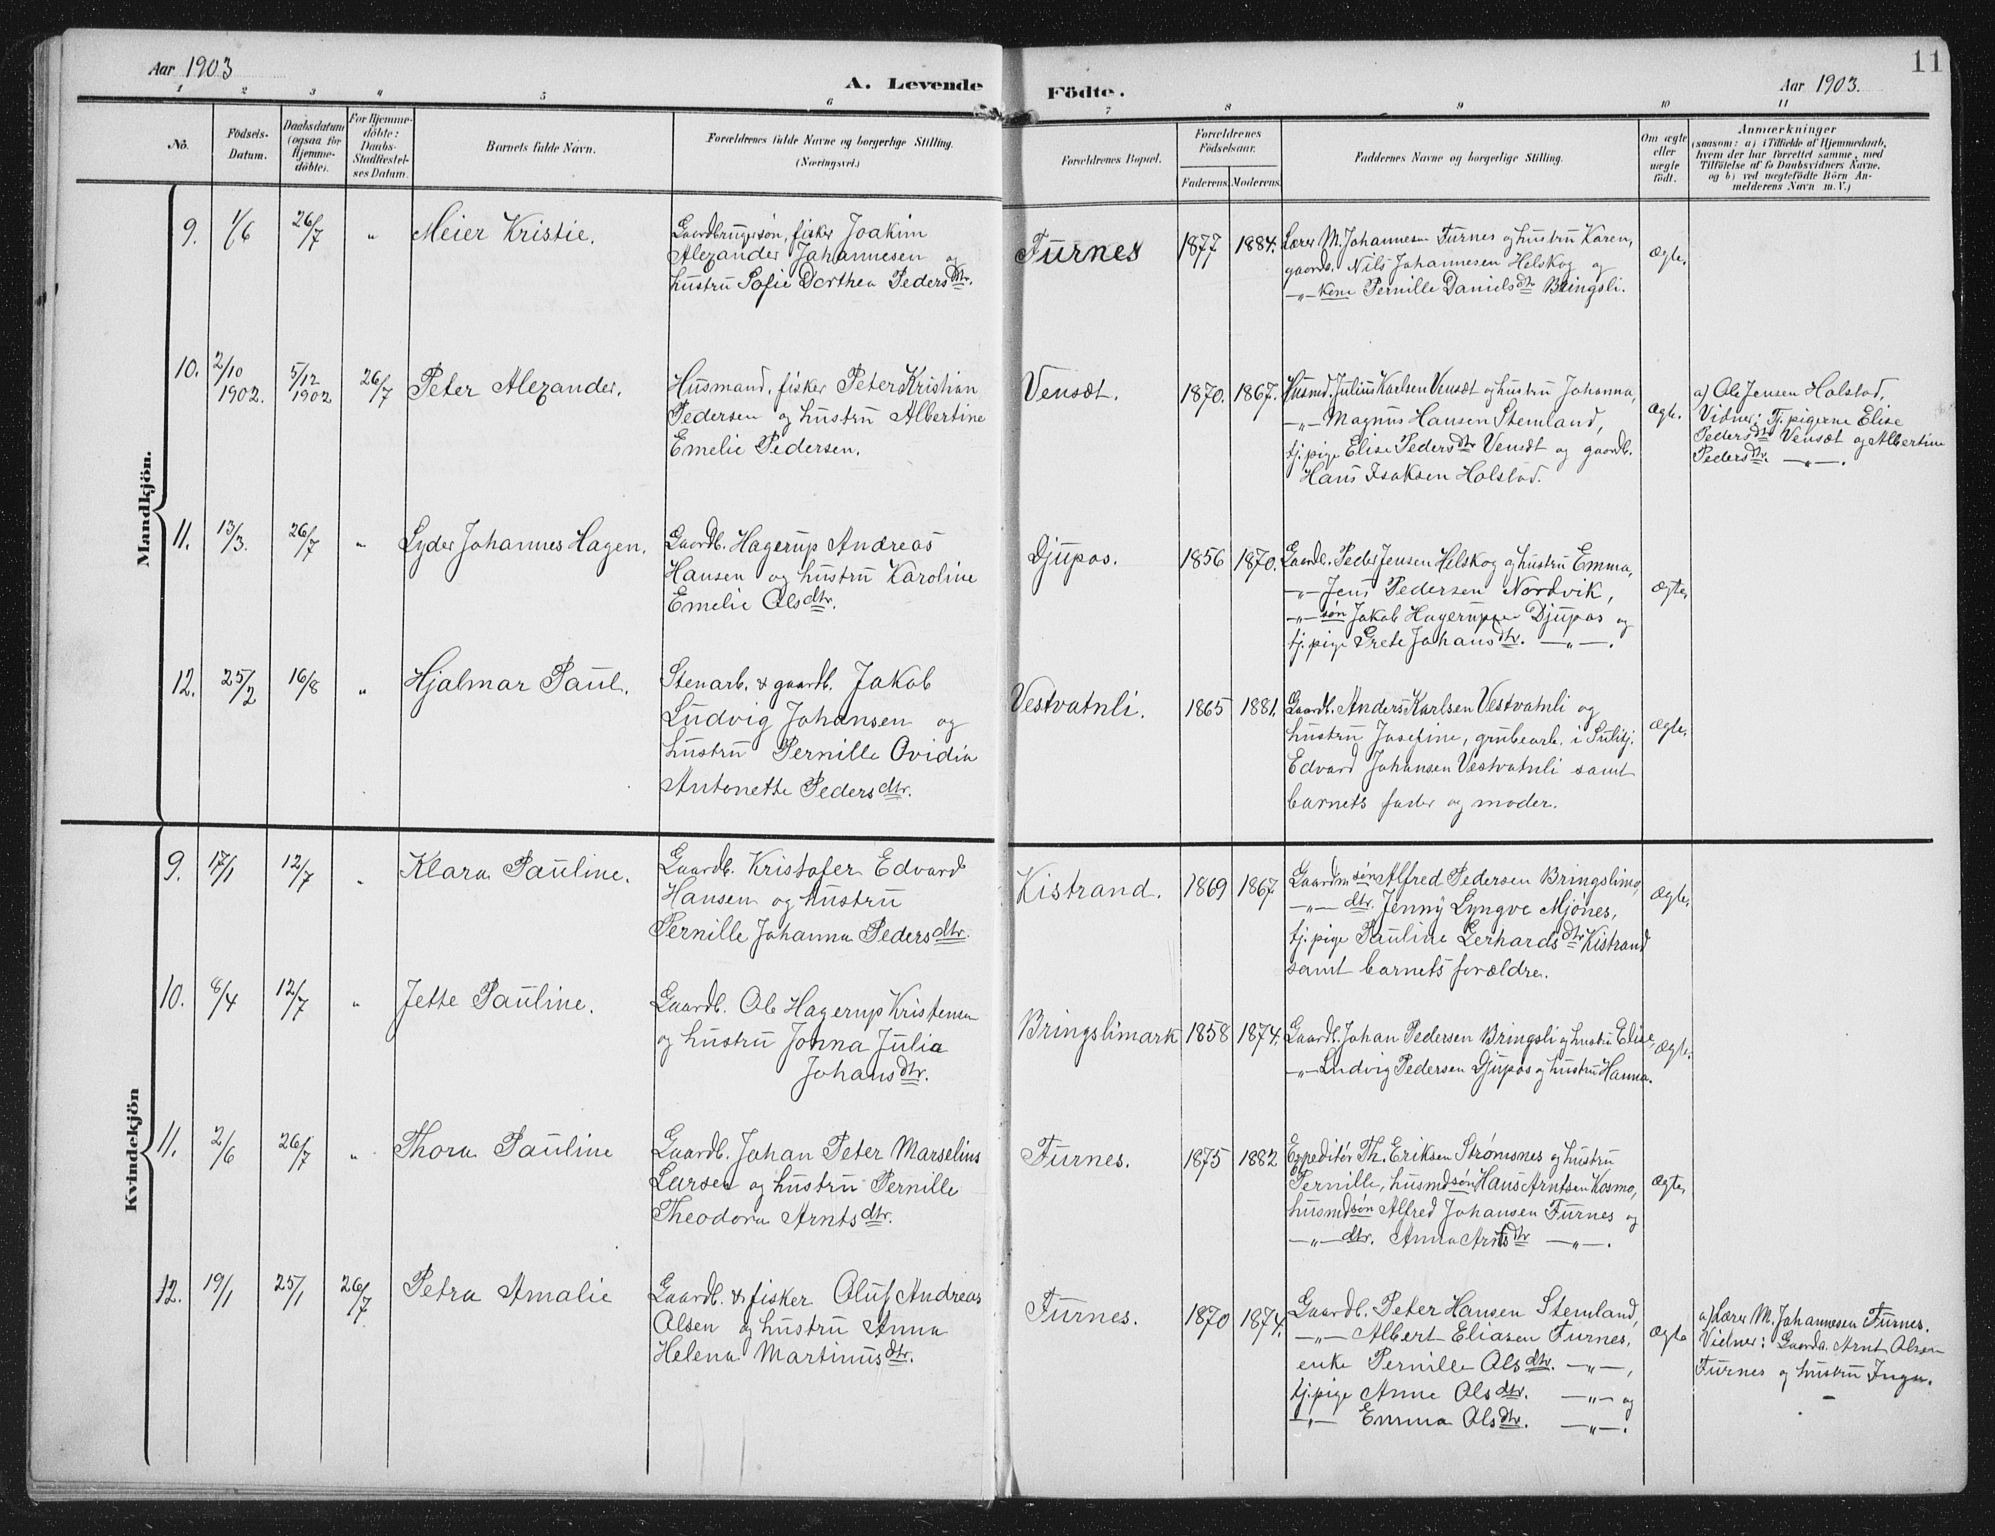 11
Aar 1903
A. Levende
Födte.
Aar 1903.
1 2 3 4 5 6 7 8 9 10 11
No.
Födsels-
Datum.
Daabsdatum
(ogsaa for
Hjemme-
döbte).
For Hjemme-
döbte:
Daabs-
Stadfæstel-
ses Datum.
Barnets fulde Navn.
Forældrenes fulde Navne og borgerlige Stilling.
(Næringsvei.)
Forældrenes Bopæl.
Forældrenes
Födselsaar.
Faderens. Moderens.
Faddernes Navne og borgerlige Stilling.
Om ægte
eller
uægte
födt.
Anmærkninger
(saasom: a) i Tilfælde af Hjemmedaab,
hvem der har forrettet samme, med
Tilföielse af to Daabsvidners Navne.
og b) ved uægtefödte Börn An-
melderens Navn m. V.)
Mandkjön.
9. 1/6 26/7 " Meier Kristie.
Gaardbrugersøn, fisker Joakim
Alexander Johannesen og
hustru Sofie Dorthea Pedersdtr.
Furnes 1877 1884.
Lærer M. Johannesen Furnes og hustru Karen,
gaardb. Nils Johannesen Helskog og
—"— kone Pernille Danielsdtr Bringsli.
Ægte.
10. 2/10 1902. 5/12 1902 26/7 Peter Alexander.
Husmand, fisker Peter Kristian
Pedersen og hustru Albertine
Emelie Pedersen.
Vensæt. 1870. 1867.
Husmd. Julius Karlsen Vensæt og hustru Johanna,
—"— Magnus Hansen Stemland,
tj.pige Elise Pedersdtr Vensæt og gaardb.
Hans Isaksen Holstad.
Ægte.
a) Ole Jensen Holstad.
Vidner: Tj.pigerne Elise
Pedersdtr Vensæt og Albertine
Pedersdtr. —"—.
11. 13/3. 26/7 " Lyder Johannes Hagen.
Gaardb. Hagerup Andreas
Hansen og hustru Karoline
Emelie Olsdtr.
Djupos. 1856 1870.
Gaardb. Peder Jensen Helskog og hustru Emma,
—"— Jens Pedersen Nordvik,
—"— søn Jakob Hagerupsen Djupos og
tj.pige Grete Johansdtr. —"—.
Ægte.
12. 25/2 16/8 " Hjalmar Paul.
Stenarb. & gaardb. Jakob
Ludvig Johansen og
hustru Pernille Ovidia
Antonette Pedersdtr.
Vestvatnli. 1865 1881.
Gaardb. Anders Karlsen Vestvatnli og
hustru Josefine, grubearb. i Sulitj.
Edvard Johansen Vestvatnli samt
barnets fader og moder.
Ægte.
Kvindekjön
9. 17/1 12/7 " Klara Pauline.
Gaardb. Kristofer Edvard
Hansen og hustru
Pernille Johanna Pedersdtr.
Kistrand. 1869 1867
Gaardmsøn Alfred Pedersen Bringslimo,
—"— dtr. Jenny Lyngve Mjönes,
tj.pige Pauline Gerhardsdtr Kistrand
samt barnets forældre.
Ægte.
10. 8/4 12/7 " Jette Pauline.
Gaardb. Ole Hagerup Kristensen
og hustru Jonna Julia
Johansdtr.
Bringslimark 1858 1874.
Gaardb. Johan Pedersen Bringsli og hustru Elise,
—"— Ludvig Pedersen Djupos og hustru Hanna.
Ægte.
11. 2/6 26/7 " Thora Pauline
Gaardb. Johan Peter Marselius
Larsen og hustru Pernille
Theodora Arntsdtr.
Furnes. 1875 1882
Expeditør Th. Eriksen Strømsnes og hustru
Pernille, husmdsøn Hans Arntsen Kosmo,
husmdsøn Alfred Johansen Furnes og
—"— dtr. Anna Arntsdtr —"—.
Ægte.
12. 19/1 25/1 26/7 Petra Amalie
Gaardb. & fisker Oluf Andreas
Olsen og hustru Anna
Helena Martinusdtr.
Furnes. 1870 1874.
Gaardb. Peter Hansen Stemland,
—"— Albert Eliasen Furnes,
enke Pernille Olsdtr. —"—,
tj.pige Anne Olsdtr. —"— og
—"— Emma Olsdtr. —"—.
Ægte
a) Lærer M. Johannesen Furnes.
Vidner: Gaardb. Arnt Olsen
Furnes og hustru Inga.